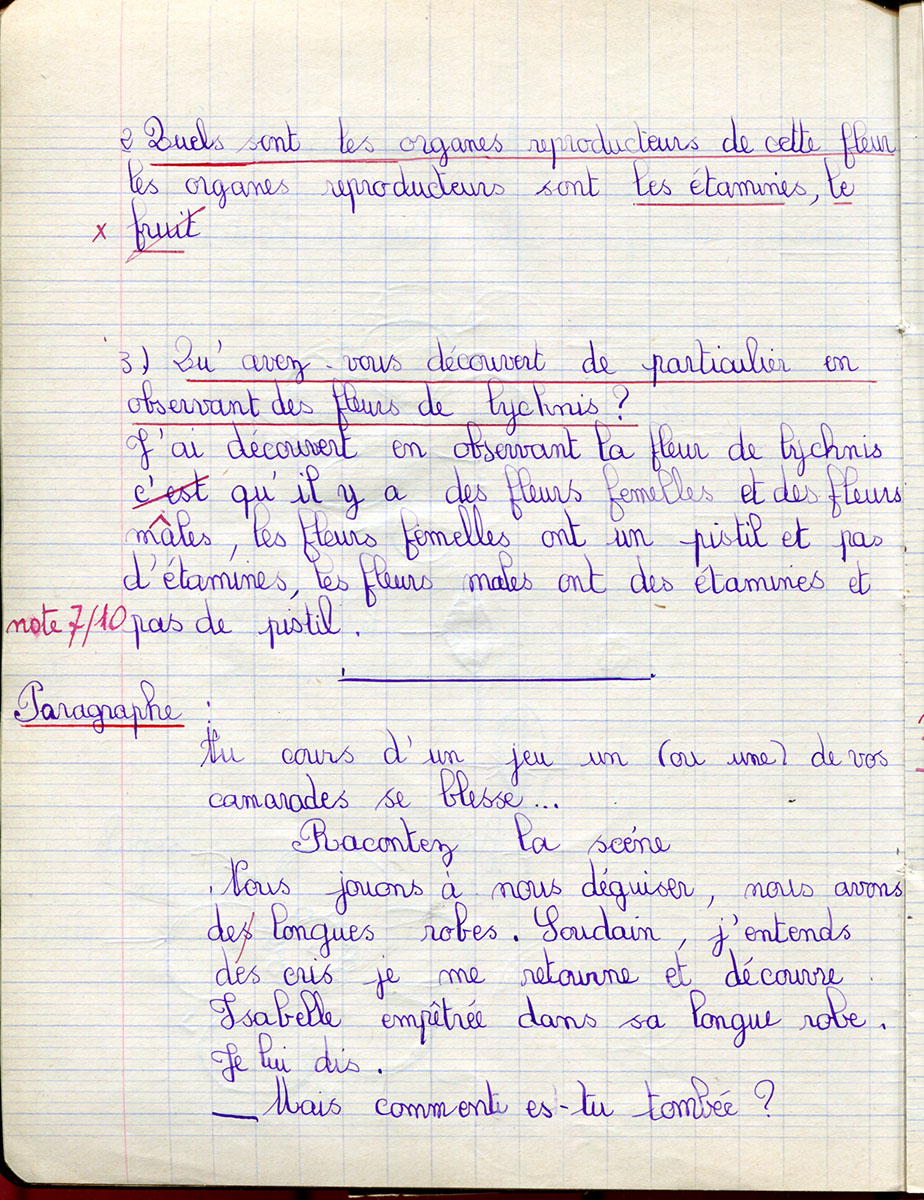 2 Quels sont les organes reproducteurs de cette fleur
les organes reproducteurs sont les étamines, le
x fruit
3) Qu'avez-vous découvert de particulier en
observant des fleurs de lychnis ?
J'ai découvert en observant la fleur de lychnis
c'est qu'il y a des fleurs femelles et des fleurs
mâles, les fleurs fémelles ont un pistil et pas
d'étamines, les fleurs males ont des étamines et
note 7/10 pas de pistil.
Paragraphe :
Au cours d'un jeu un (ou une) de vos
camarades se blesse...
Racontez la scéne
Nous jouons à nous déguiser, nous avons
des longues robes. Soudain, j'entends
des cris je me retourne et découvre
Isabelle empêtrée dans sa longue robe.
Je lui dis.
_ Mais comment es-tu tombée ?